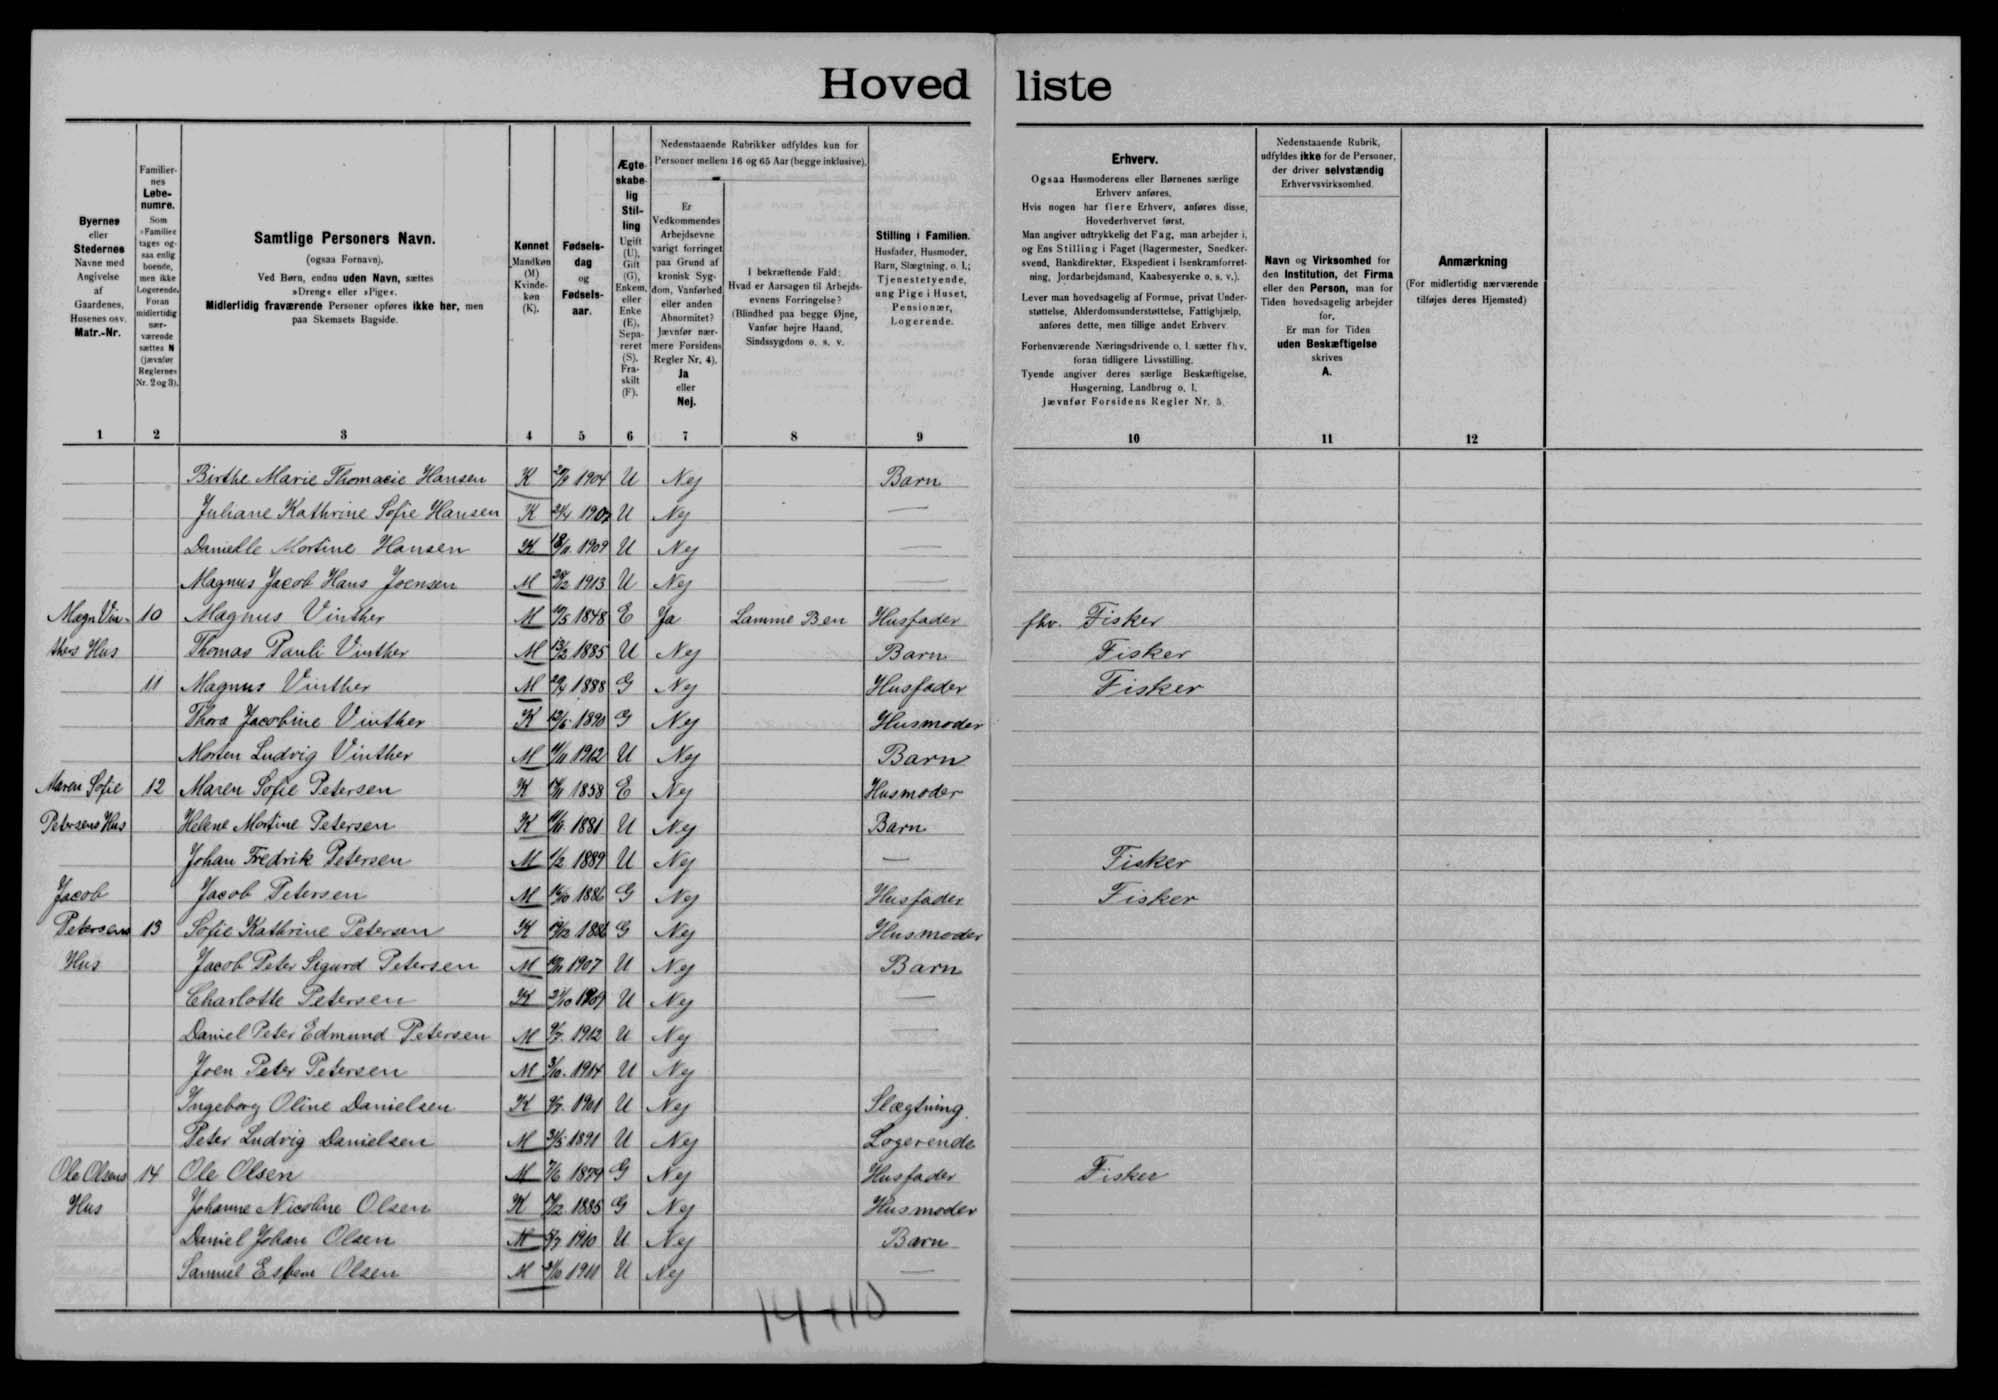 Hoved liste
Byernes
eller
Stedernes
Navne med
Angivelse
af
Gaardenes,
Husenes osv.
Matr.-Nr.
Familier-
nes
Løbe-
numre.
Som
»Familie«
tages og-
saa enlig
boende,
men ikke
Logerende.
Foran
midlertidig
nær-
værende
sættes N
(jævnfør
Reglernes
Nr. 2 og 3).
Samtlige Personers Navn.
(ogsaa Fornavn).
Ved Børn, endnu uden Navn, sættes
»Dreng« eller »Pige«.
Midlertidig fraværende Personer opføres ikke her, men
paa Skemaets Bagside.
Kønnet
Mandkøn
(M)
Kvinde-
køn
(K).
Fødsels-
dag
og
Fødsels-
aar.
Ægte-
skabe-
lig
Stil-
ling
Ugift
(U),
Gift
(G),
Enkem.
eller
Enke
(E),
Sepa-
reret
(S).
Fra-
skilt
(F).
Nedenstaaende Rubrikker udfyldes kun for
Personer mellem 16 og 65 Aar (begge inklusive).
Er
Vedkommendes
Arbejdsevne
varigt forringet
paa Grund af
kronisk Syg-
dom, Vanførhed
eller anden
Abnormitet?
Jævnfør nær-
mere Forsidens
Regler Nr. 4).
Ja
eller
Nej.
I bekræftende Fald:
Hvad er Aarsagen til Arbejds-
evnens Forringelse?
(Blindhed paa begge Øjne,
Vanfør højre Haand,
Sindssygdom o. s. v.
Stilling i Familien.
Husfader, Husmoder,
Barn, Slægtning, o. l.;
Tjenestetyende,
ung Pige i Huset,
Pensionær,
Logerende.
Erhverv.
Ogsaa Husmoderens eller Børnenes særlige
Erhverv anføres.
Hvis nogen har flere Erhverv, anføres disse,
Hovederhvervet først.
Man angiver udtrykkelig det Fag, man arbejder i,
og Ens Stilling i Faget (Bagermester, Snedker-
svend, Bankdirektør, Ekspedient i Isenkramforret-
ning, Jordarbejdsmand, Kaabesyerske o. s. v.).
Lever man hovedsagelig af Formue, privat Under-
støttelse, Alderdomsunderstøttelse, Fattighjælp,
anføres dette, men tillige andet Erhverv.
Forhenværende Næringsdrivende o. l. sætter fhv.
foran tidligere Livsstilling.
Tyende angiver deres særlige Beskæftigelse,
Husgerning, Landbrug o. l.
Jævnfør Forsidens Regler Nr. 5.
Nedenstaaende Rubrik,
udfyldes ikke for de Personer,
der driver selvstændig
Erhvervsvirksomhed.
Navn og Virksomhed for
den Institution, det Firma
eller den Person, man for
Tiden hovedsagelig arbejder
for.
Er man for Tiden
uden Beskæftigelse
skrives
A.
Anmærkning
(For midlertidig nærværende
tilføjes deres Hjemsted)
1 2 3 4 5 6 7 8 9 10 11 12
Birthe Marie Thomacie Hansen K 1904 U Nej Barn
Juliane Kathrine Sofie Hansen K U Nej —
Danielle Mortine Hansen K 1909 U Nej —
Magnus Jacob Hans Joensen M 1913 U Nej —
Magn Vin- 10 Magnus Vinther M 1848 E Ja Lamme Ben Husfader fhv. Fisker
thers Hus Thomas Pauli Vinther M 1885 U Nej Barn Fisker
11 Magnus Vinther M 1888 G Nej Husfader Fisker
Thora Jacobine Vinther K 1890 G Nej Husmoder
Morten Ludvig Vinther M 1912 U Nej Barn
Maren Sofie 12 Maren Sofie Petersen K 1858 E Nej Husmoder
Petersens Hus Helene Mortine Petersen K 1881 U Nej Barn
Johan Fredrik Petersen M 1/2 1889 U Nej — Fisker
Jacob Jacob Petersen M 1886 G Nej Husfader Fisker
Petersens 13 Sofie Kathrine Petersen K 1886 G Nej Husmoder
Hus Jacob Peter Sigurd Petersen M 1907 U Nej Barn
Charlotte Petersen K 1909 U Nej —
Daniel Peter Edmund Petersen M 1912 U Nej —
Joen Peter Petersen M 3/10. 1914 U Nej —
Ingeborg Oline Danielsen K 1901 U Nej Slægtning
Peter Ludvig Danielsen M 1891 U Nej Logerende
Ole Olsens 14 Ole Olsen M 7/6 1879 G Nej Husfader Fisker
Hus Johanne Nicoline Olsen K 1885 G Nej Husmoder
Daniel Johan Olsen M 1910 U Nej Barn
Samuel Esbern Olsen M 1911 U Nej —
14+10